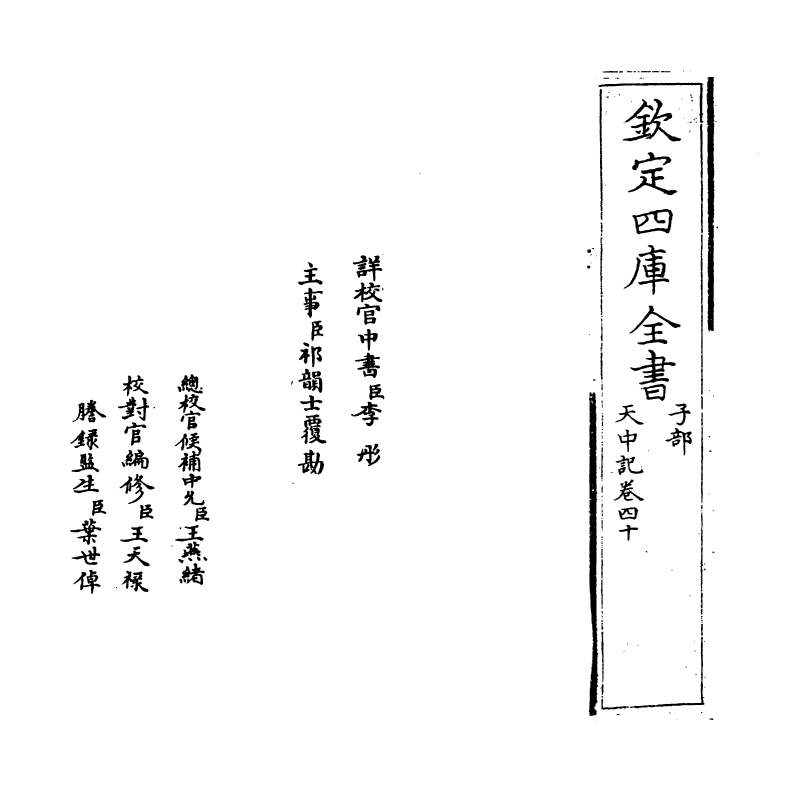 欽定四庫全書
子部
天中記卷四十
詳校官中書臣李彤
主事臣祁韻士覆勘
總校官候補中允臣王燕緒
校對官編修臣王天祿
謄錄監生臣葉世倬